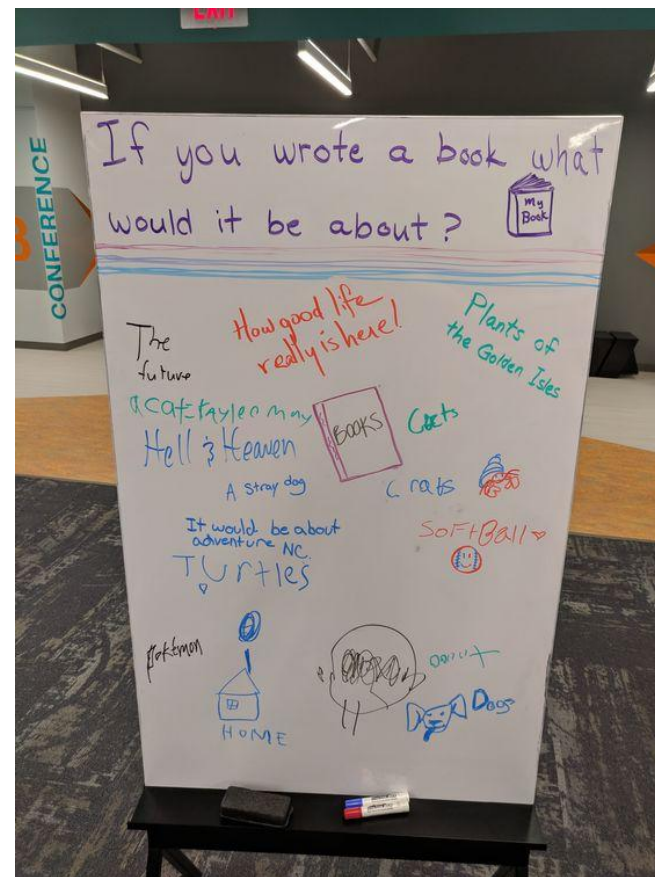 EXIT
CONFERENCE
If you wrote a book what
would it be about?
My
Book
How good life
really is here!
Plants of
the Golden Isles
The
future
a cat
BOOKS
Hell & Heaven
A stray dog
It would be about
adventure NC.
SoFtBall
TUrtles
HOME
Dogs